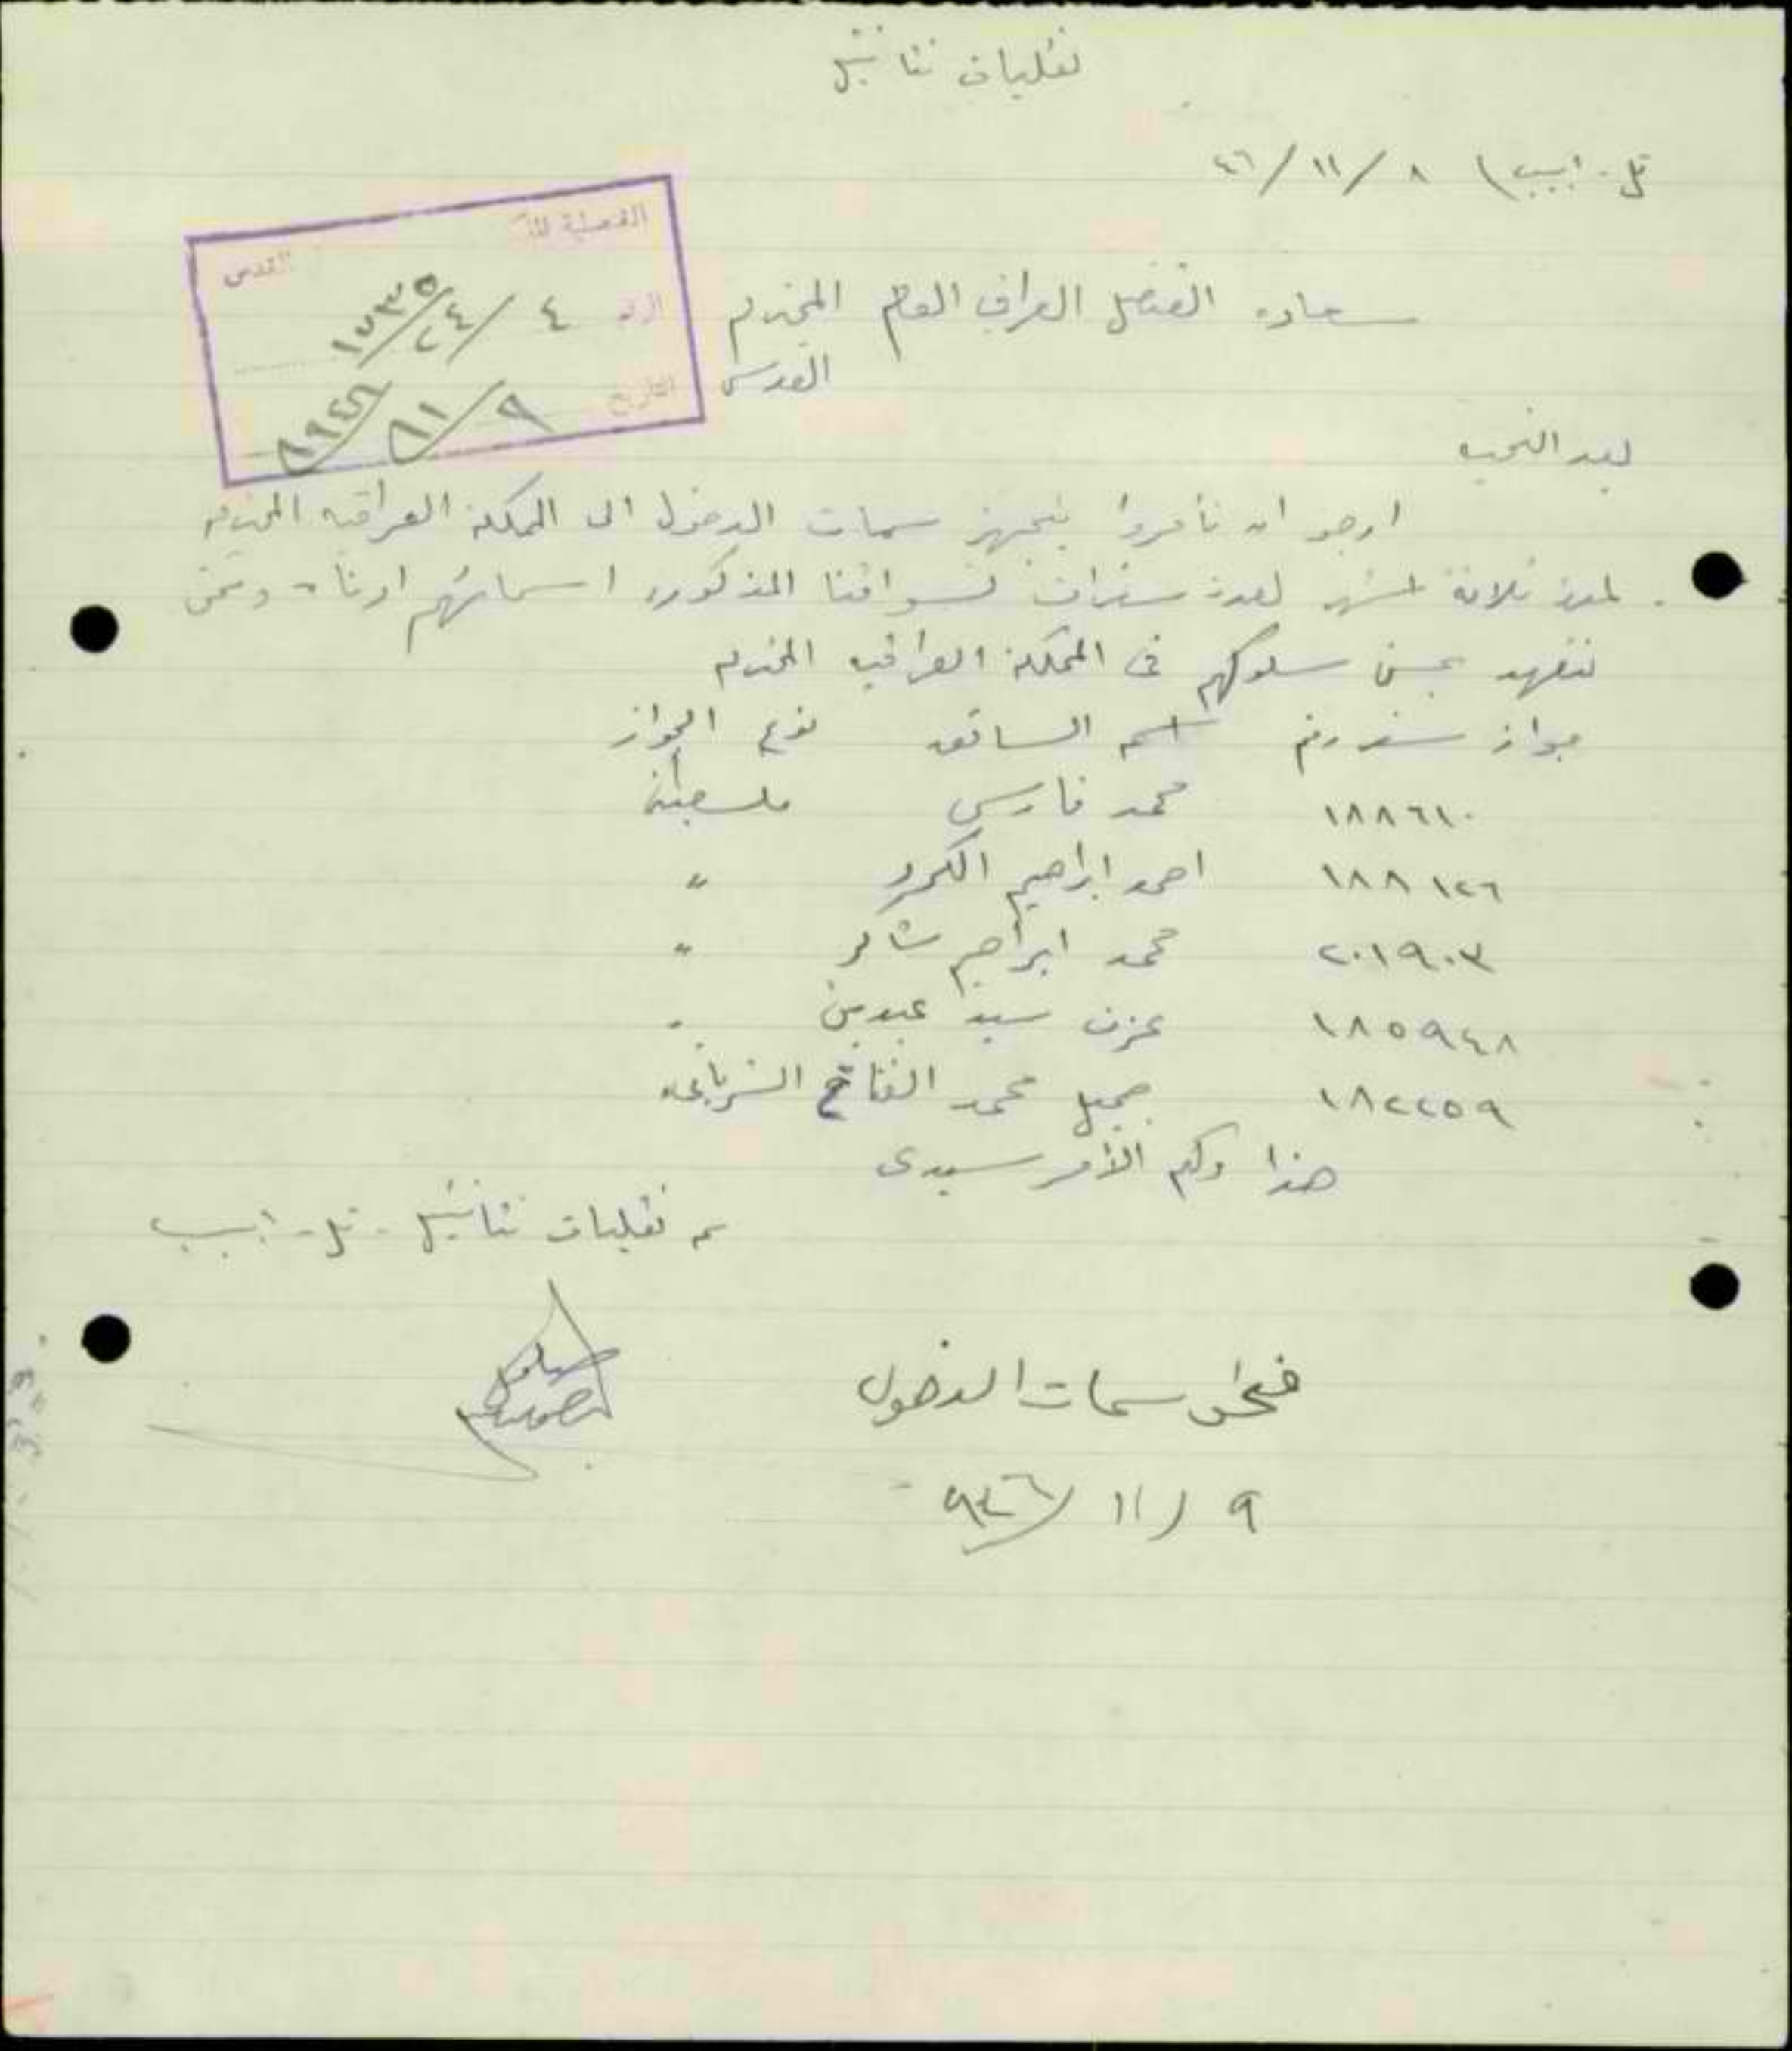 نقليات نتانئيل
تل. ابيب ) ٨ / ١١ / ٤٦
القنصلية
القدس
٤ / ٢٤ / ١٧٣٥
التاريخ ٩ / ١١ / ١٩٤٦
سعادة القنصل العراقي العام المحترم
القدس
بعد التحيه
ارجو ان تأمروا بتجهيز سمات الدخول الى المملكة العراقيه المحترمه
لمدة ثلاثة اشهر لعدة سفرات لسواقنا المذكوره اسمائهم ادناه ونحن
نتعهد بحسن سلوكهم في المملكة العراقيه المحترم
جواز سفر رقم اسم السائق نوع الجواز
١٨٨٦١٠ محمد فارس فلسطيني
١٨٨١٢٦ احمد ابراهيم الكرد "
٢٠١٩٠٣ محمد ابراهيم شاكر "
١٨٥٩٤٨ عزت سيد عبدين "
١٨٢٢٥٩ جميل محمد الفتاح الشرباتي
هذا ولكم الأمر سيدي
نقليات نتانئيل - تل - ابيب
سمات الدخول
٩ / ١١ / ٩٤٦